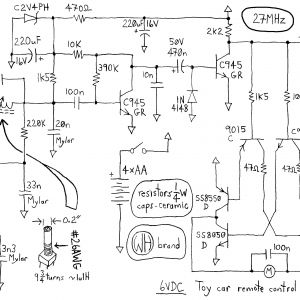 C2V4PH
470Ω
220uF 16V
27MHz
220uF
16V
10K
50V
470n
2K2
1K5
390K
10n
C945
GR
100n
C945
GR
1N
4148
1K5
10
220K
20n
Mylar
9015
C
47Ω
47Ω
4xAA
resistors ¼W
caps-ceramic
SS8550
D
33n
Mylar
0.2"
#26AWG
WH brand
SS8050
D
3n3
Mylar
9¾ turns ~1uH
100n
M
6VDC Toy car remote control